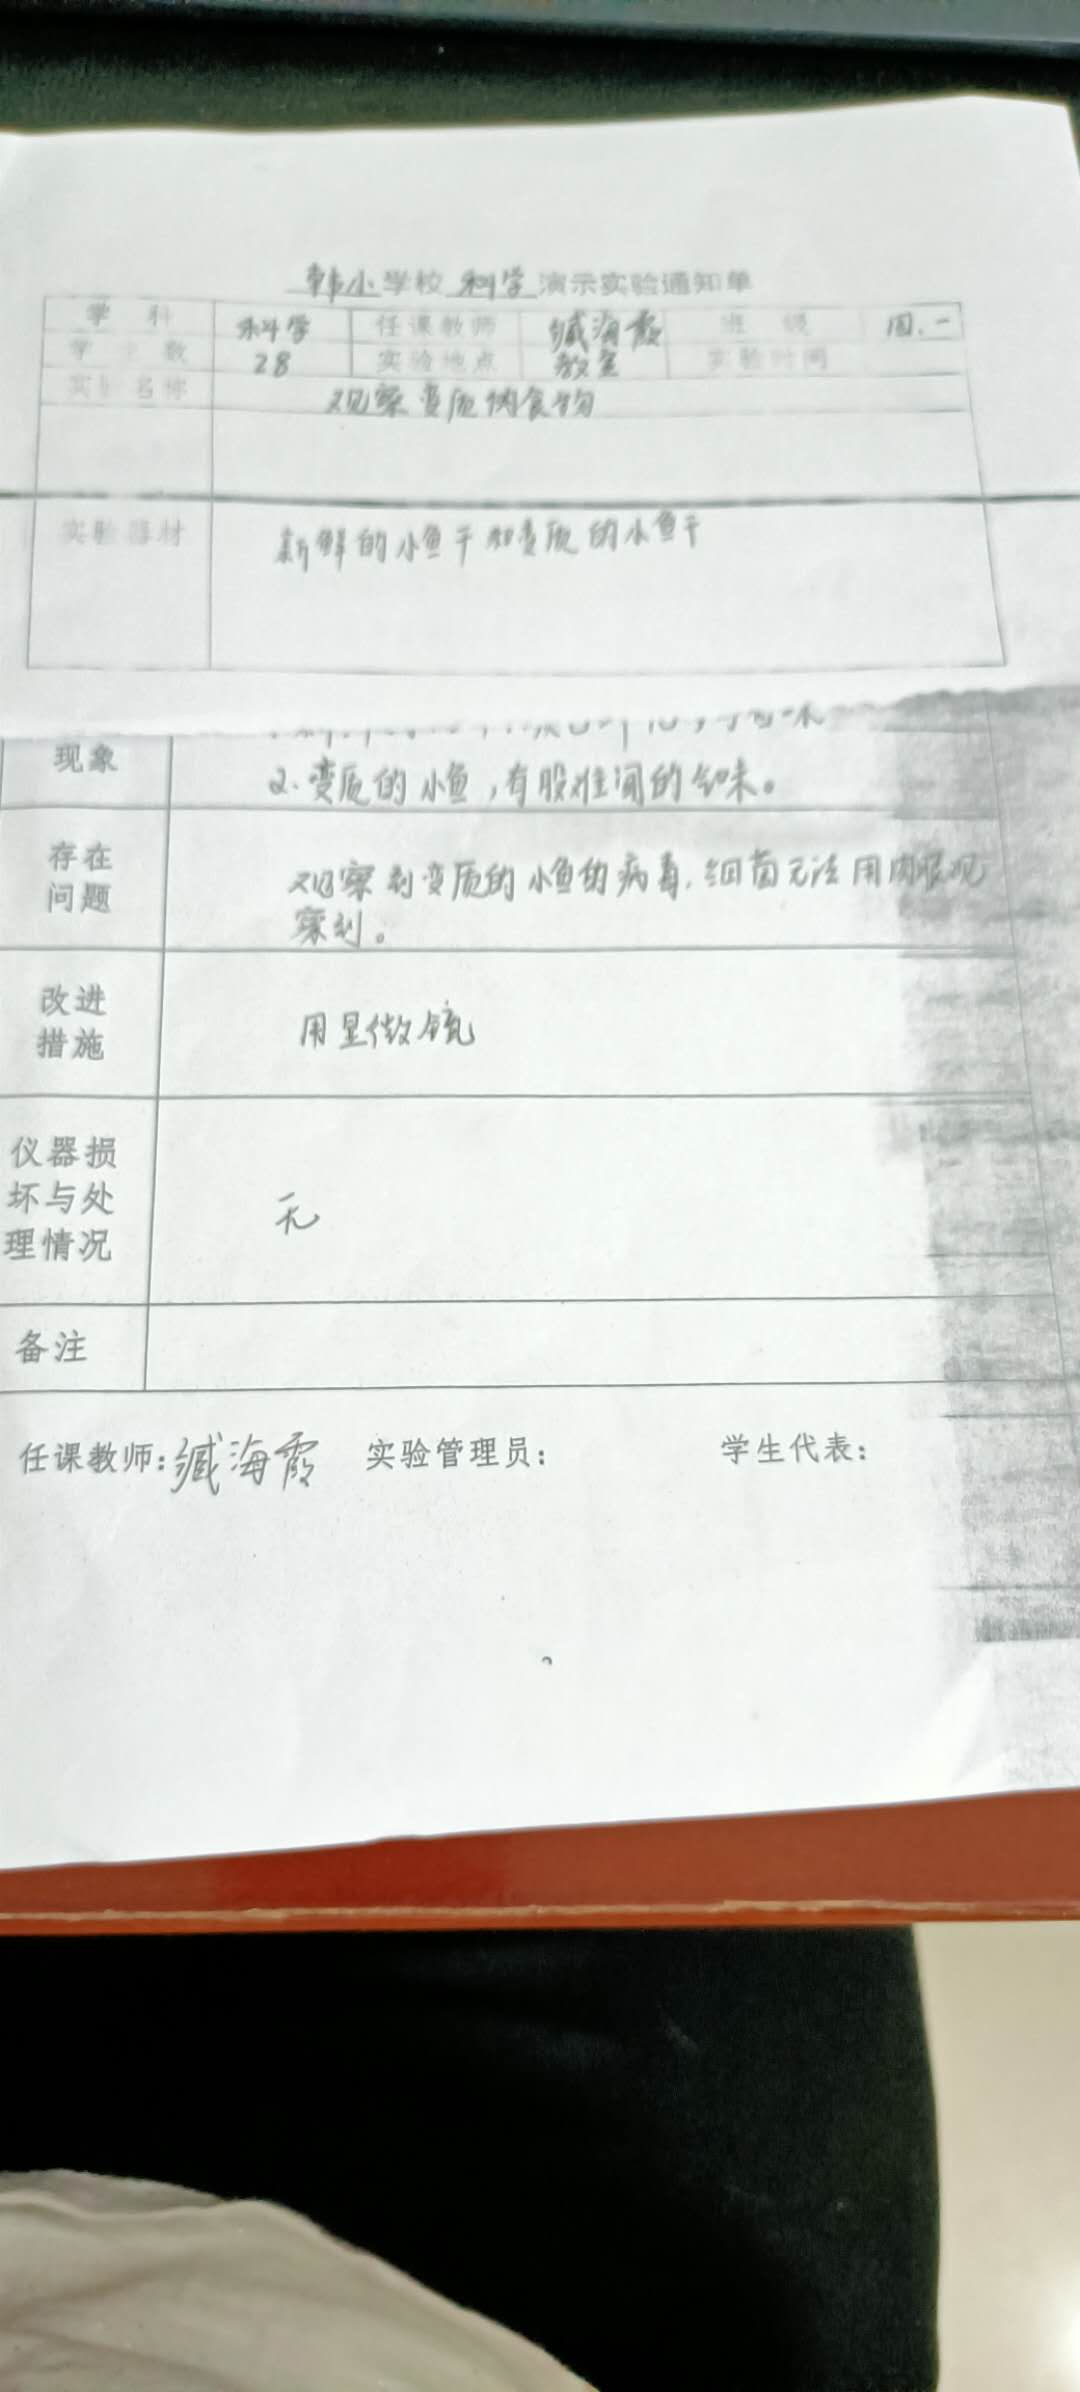 韩小学校 科学 演示实验通知单
学 科 科学 任课教师 臧海霞 班 级 四.一
学 生 数 28 实验地点 教室 实验时间
实验名称 观察变质的食物
实验器材 新鲜的小鱼干和变质的小鱼干
现象
2.变质的小鱼,有股难闻的气味。
存在
问题
观察到变质的小鱼的病毒.细菌无法用肉眼观
察到。
改进
措施
用显微镜
仪器损
坏与处
理情况
无
备注
任课教师:臧海霞 实验管理员: 学生代表: